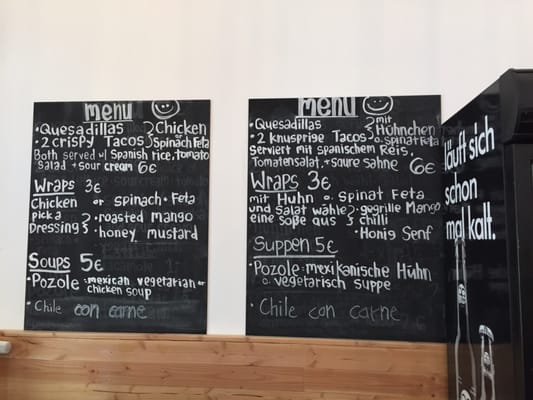 menu
• Quesadillas } Chicken
• 2 crispy Tacos } or Spinach Feta
Both served w/ Spanish rice, tomato
salad + sour cream 6€
Wraps 3€
Chicken or spinach • Feta
pick a } • roasted mango
Dressing } • honey mustard
Soups 5€
• Pozole : mexican vegetarian or
chicken soup
• Chile con carne
menu
• Quesadillas } mit
• 2 knusprige Tacos } Hühnchen
o. spinat Feta
Serviert mit spanischem Reis,
Tomatensalat, + saure sahne 6€
Wraps 3€
mit Huhn o. spinat Feta
und Salat wähle } • gegrille Mango
eine soße aus } • chilli
• Honig Senf
Suppen 5€
• Pozole : mexikanische Huhn
o. vegetarisch suppe
• Chile con carne
läuft sich
schon
mal kalt.